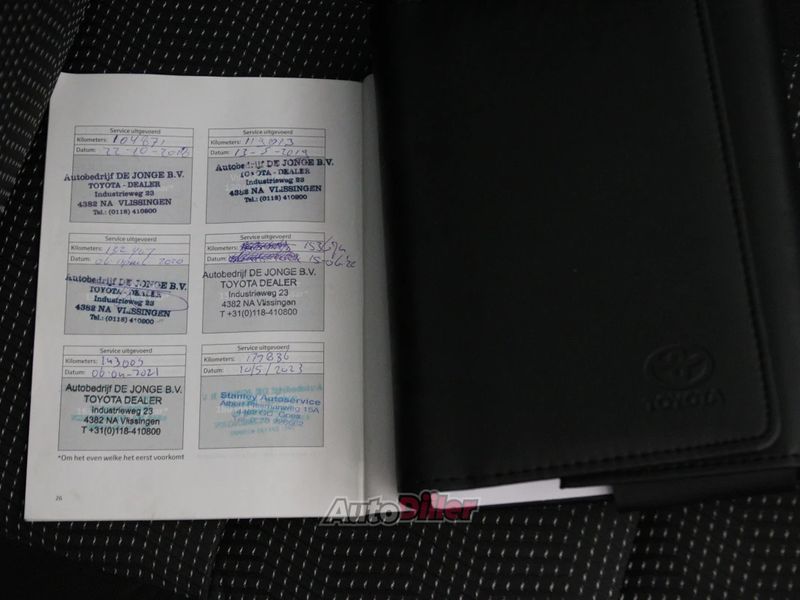 Service uitgevoerd
Kilometers: 104871
Datum: 22-10-2018
Autobedrijf DE JONGE B.V.
TOYOTA - DEALER
Industrieweg 23
4382 NA VLISSINGEN
Tel.: (0118) 410800
Service uitgevoerd
Kilometers:
Datum: 13-5-2019
Autobedrijf DE JONGE B.V.
TOYOTA - DEALER
Industrieweg 23
4382 NA VLISSINGEN
Tel.: (0118) 410800
Service uitgevoerd
Kilometers:
Datum: 06 april 2020
Autobedrijf DE JONGE B.V.
TOYOTA - DEALER
Industrieweg 23
4382 NA VLISSINGEN
Tel.: (0118) 410800
Service uitgevoerd
Kilometers:
Datum:
Autobedrijf DE JONGE B.V.
TOYOTA DEALER
Industrieweg 23
4382 NA Vlissingen
T +31(0)118-410800
Service uitgevoerd
Kilometers: 143005
Datum: 06-04-2021
Autobedrijf DE JONGE B.V.
TOYOTA DEALER
Industrieweg 23
4382 NA Vlissingen
T +31(0)118-410800
Service uitgevoerd
Kilometers: 177836
Datum: 10/5/2023
Autoservice
15A
Goes
*Om het even welke het eerst voorkomt
26
TOYOTA
AutoDiler